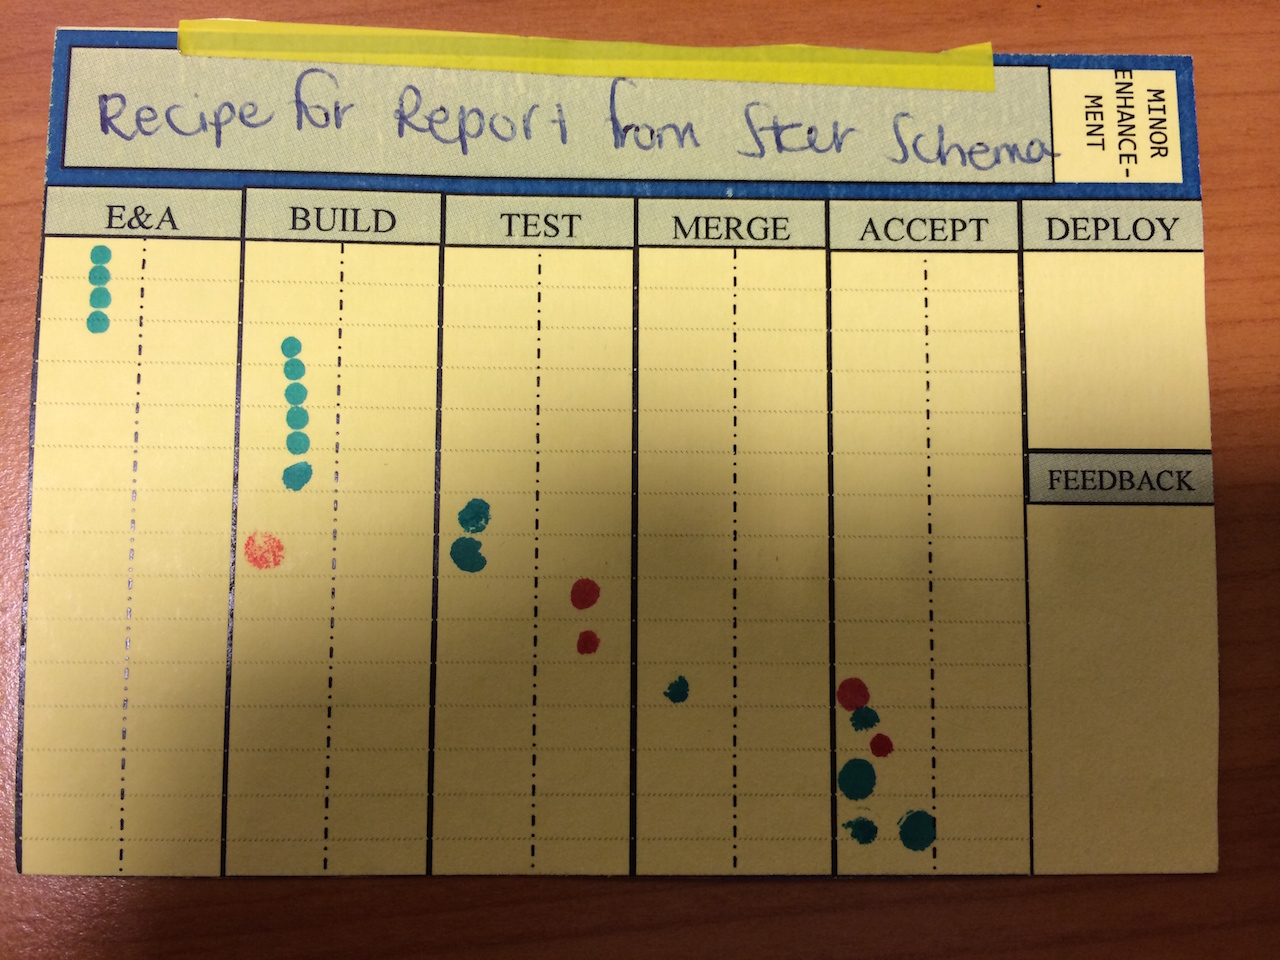 Recipe for Report from Star Schema
MINOR
ENHANCE-
MENT
E&A BUILD TEST MERGE ACCEPT DEPLOY
FEEDBACK